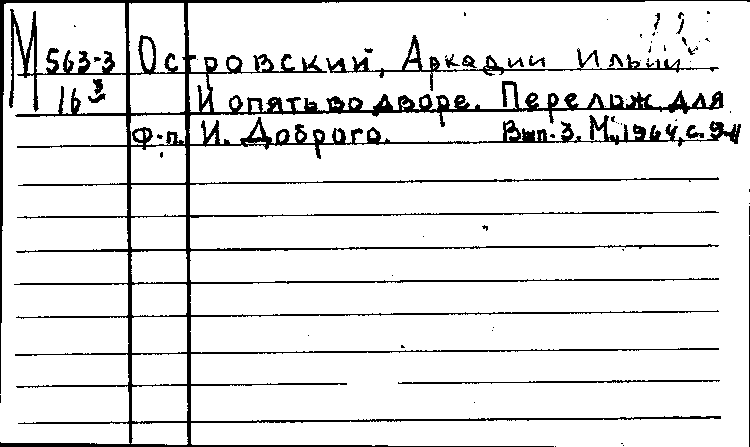 М 563-3 Островский, Аркадий Ильич.
16 3 И опять во дворе. Перелож. для
Ф-п. И. Доброго. Вып. 3. М., 1964, с. 9-11